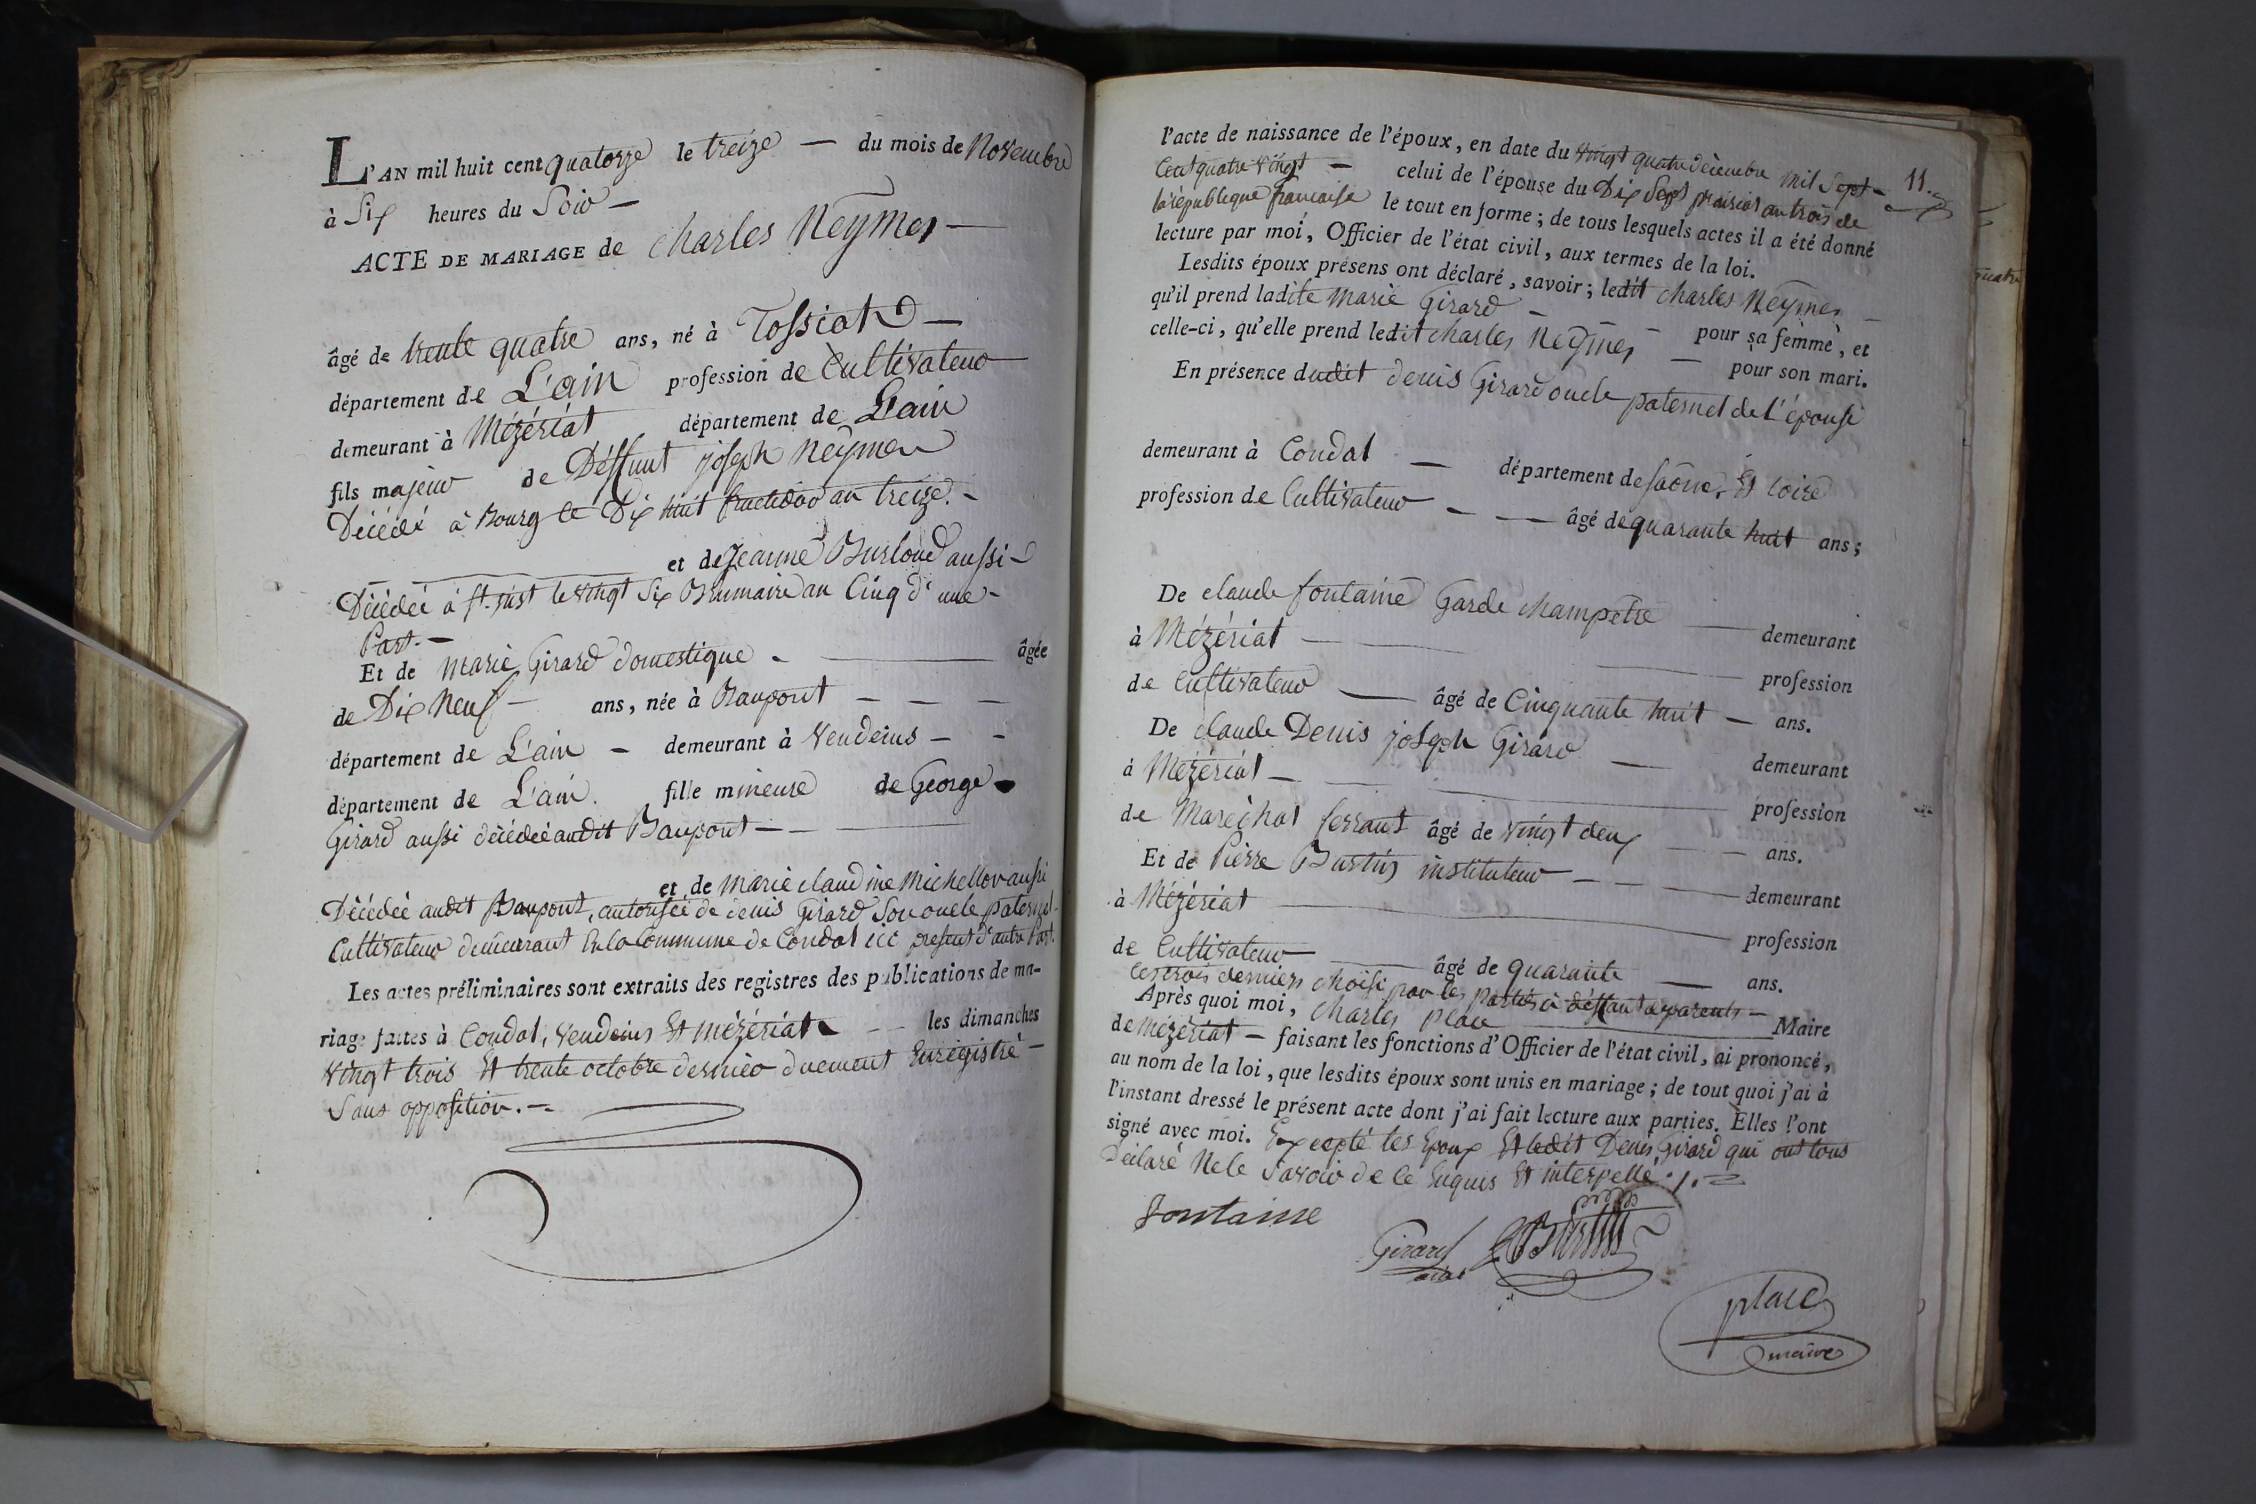 L'AN mil huit cent quatorze le treize — du mois de Novembre
à Six heures du Soir —
ACTE DE MARIAGE de Charles Neymer —
âgé de trente quatre ans, né à Tossiat —
département de L'ain profession de Cultivateur
demeurant à Mézériat département de L'ain
fils majeur de Deffunt joseph Neymer
Décédé à Bourg le Dix huit fructidor an treize. -
et de Jeanne Burloud aussi
Décédée à St just le vingt Six Brumaire an Cinq d'une
Part. —
Et de Marie Girard domestique - âgée
de Dix Neuf - ans, née à Baupont - - -
département de L'ain - demeurant à Vendeins - -
département de L'ain. fille mineure de George
Girard aussi décédé audit Baupont - -
et de Marie claudine Michellon aussi
Décédée audit Baupont, autorisée de denis Girard Son oncle paternel
Cultivateur demeurant en la Commune de Condal ici présent d'autre Part.
Les actes préliminaires sont extraits des registres des publications de ma-
riage faites à Condal, Vendeins Et Mézériat - - les dimanches
Vingt trois Et trente octobre dernier duement Enregistré -
Sans opposition. -
11.
l'acte de naissance de l'époux, en date du vingt quatre décembre mil Sept -
Cent quatre vingt - celui de l'épouse du Dix Sept prairial an trois de
la république francaise le tout en forme ; de tous lesquels actes il a été donné
lecture par moi, Officier de l'état civil, aux termes de la loi.
Lesdits époux présens ont déclaré, savoir ; ledit Charles Neymer
qu'il prend ladite Marie Girard - - - pour sa femme, et
celle-ci, qu'elle prend ledit Charles Neymer — pour son mari.
En présence dudit denis Girard oncle paternel de L'épouse
demeurant à Condal — département de Saône Et Loire
profession de Cultivateur - — âgé de quarante huit ans ;
De claude fontaine Garde champetre — demeurant
à Mézériat — profession
de Cultivateur — âgé de Cinquante huit — ans.
De claude Denis joseph Girard — demeurant
à Mézériat — profession
de Maréchal ferrant âgé de vingt deux — ans.
Et de Pierre Burtin instituteur - - - demeurant
à Mézériat — profession
de Cultivateur — âgé de quarante — ans.
Les trois derniers choisi par les parties à deffaut de parents -
Après quoi moi, Charles place — Maire
de Mézériat — faisant les fonctions d'Officier de l'état civil, ai prononcé,
au nom de la loi, que lesdits époux sont unis en mariage ; de tout quoi j'ai à
l'instant dressé le présent acte dont j'ai fait lecture aux parties. Elles l'ont
signé avec moi. Excepté les Epoux Et ledit Denis Girard qui ont tous
Déclaré Ne le Savoir de ce Enquis Et interpellé ./.
fontaine
Girard
Burtin
place
maire
quatre